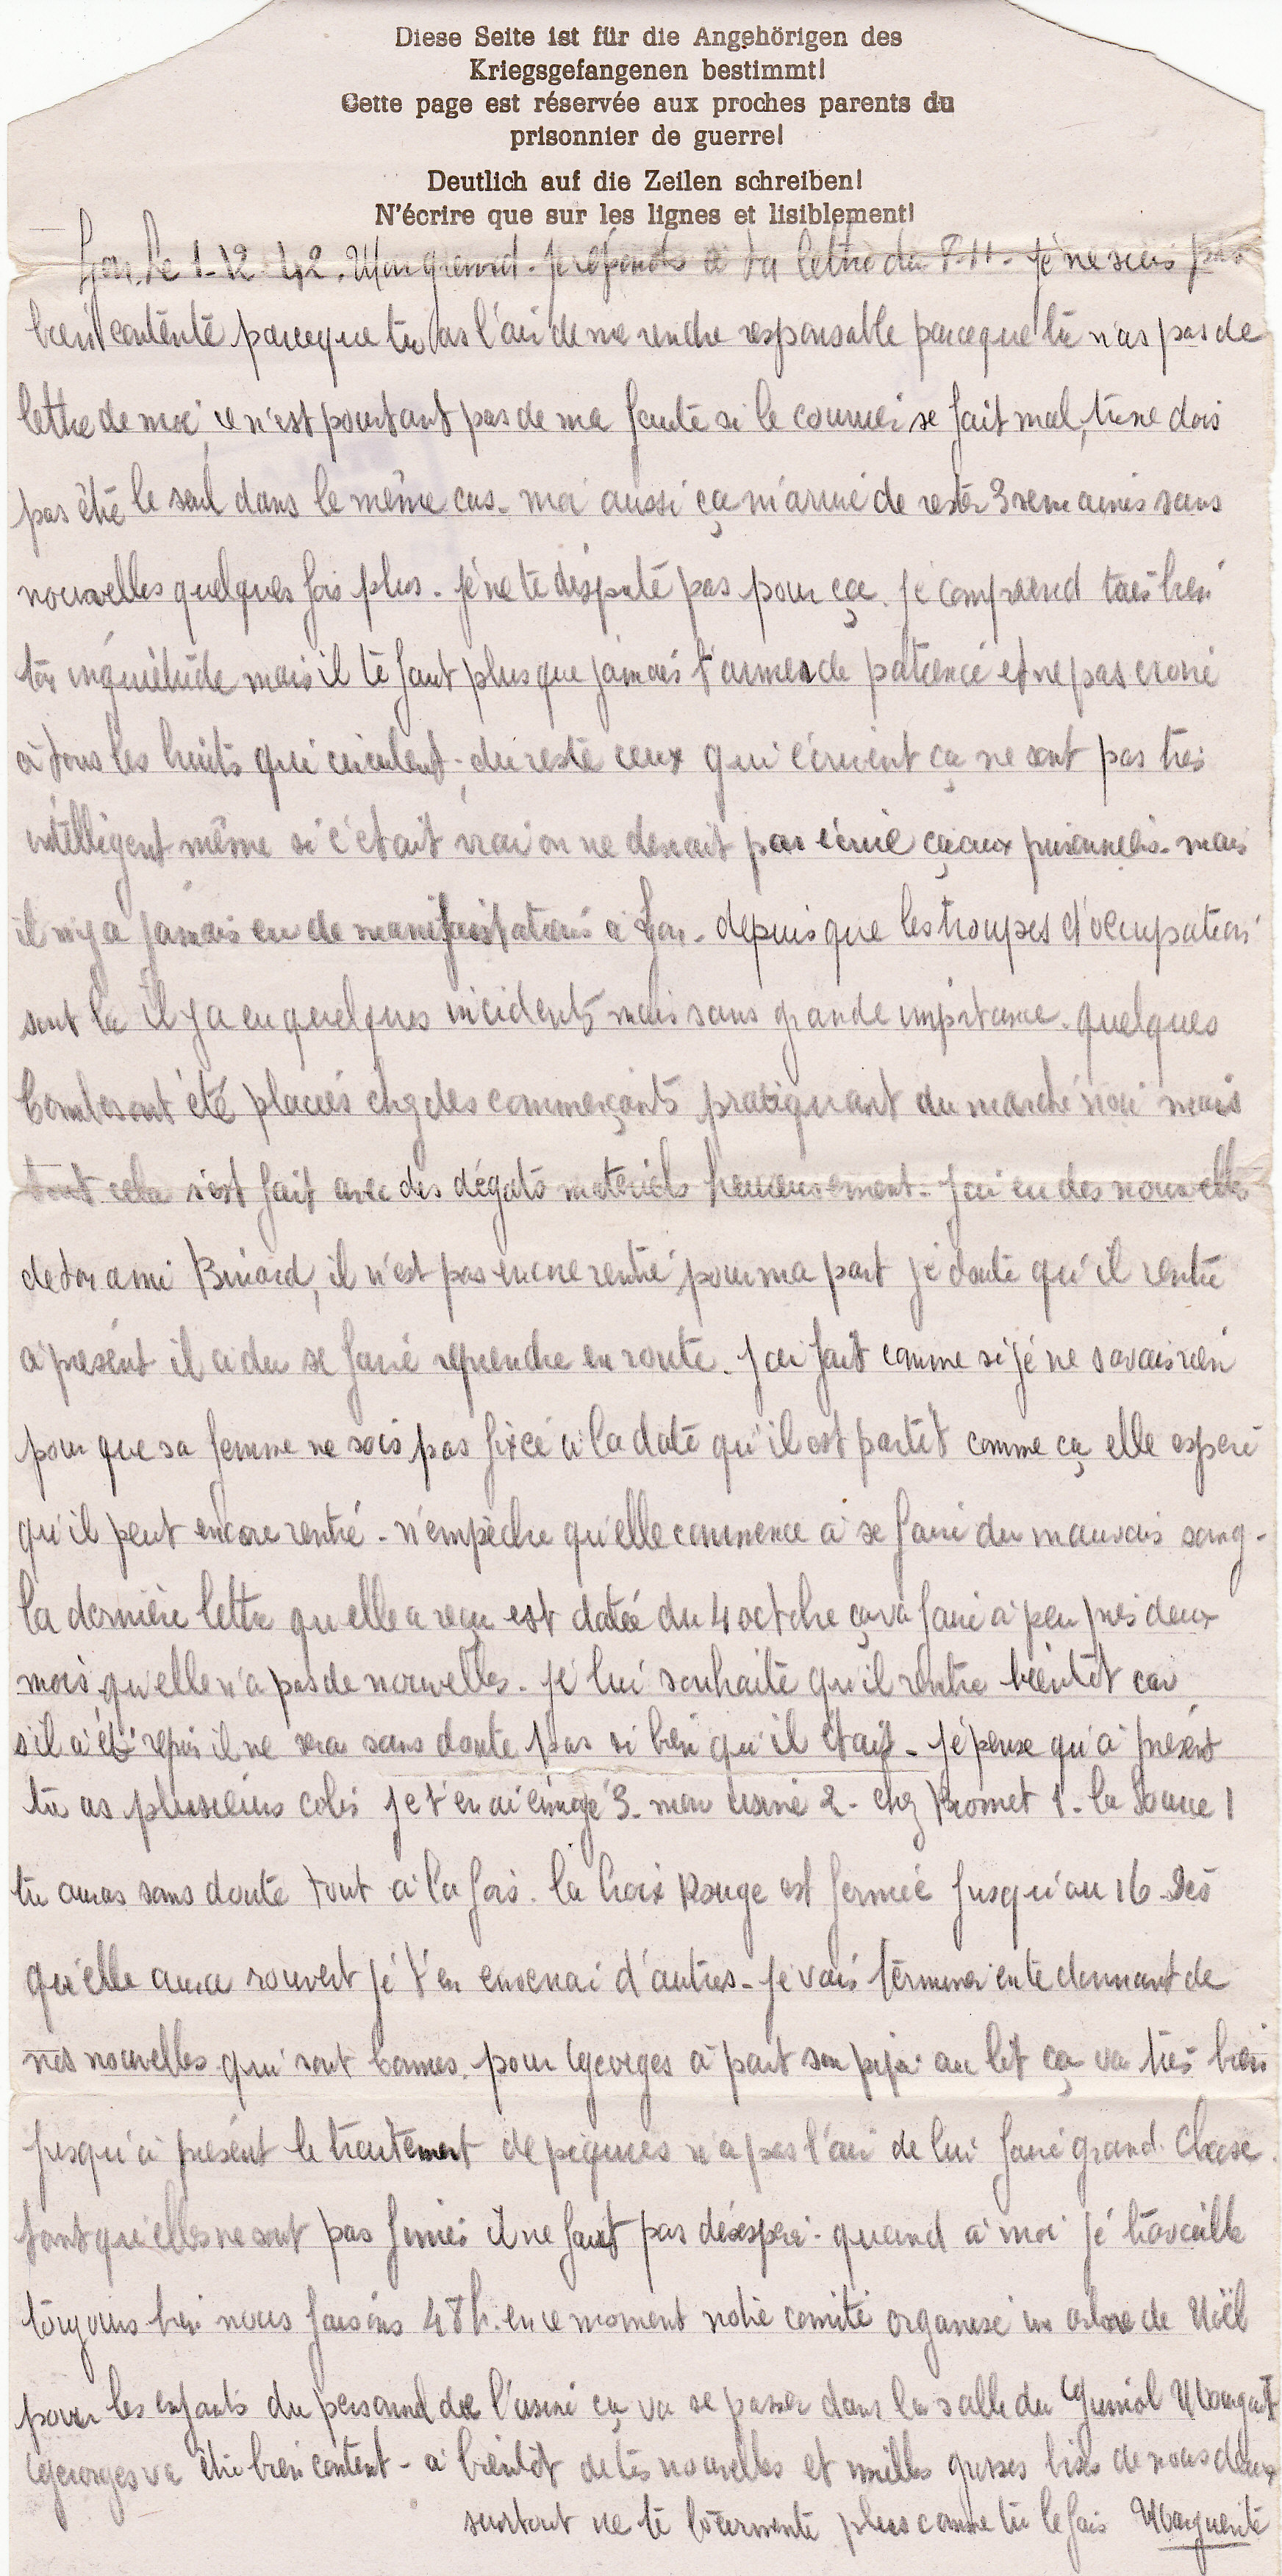 Diese Seite ist für die Angehörigen des
Kriegsgefangenen bestimmt!
Cette page est réservée aux proches parents du
prisonnier de guerre!
Deutlich auf die Zeilen schreiben!
N'écrire que sur les lignes et lisiblement!
Lyon, le 1-12-42. Mon grand. je réponds à ta lettre du 8-11. je ne suis pas
bien contente parceque tu as l'air de me rendre responsable parceque tu n'as pas de
lettre de moi ce n'est pourtant pas de ma faute si le courrier se fait mal, tu ne dois
pas être le seul dans le même cas. moi aussi ça m'arrive de rester 3 semaines sans
nouvelles quelques fois plus. je ne te dispute pas pour ça. je comprend très bien
ton inquiétude mais il te faut plus que jamais t'armer de patience et ne pas croire
à tous les bruits qui circulent. du reste ceux qui écrivent ça ne sont pas très
intelligent même si c'était vrai on ne devrait pas écrire ça aux prisonniers. mais
il n'y a jamais eu de manifestations à Lyon. depuis que les troupes d'occupation
sont là il y a eu quelques incidents mais sans grande importance. quelques
bombes ont été placés chez des commerçants pratiquant du marché noir mais
tout cela s'est fait avec des dégats materiels heureusement. j'ai eu des nouvelles
de ton ami Binard, il n'est pas encore rentré pour ma part je doute qu'il rentre
à présent il a du se faire reprendre en route. j'ai fait comme si je ne savais rien
pour que sa femme ne sois pas fixée à la date qu'il est partit comme ça elle espere
qu'il peut encore rentré. n'empèche qu'elle commence à se faire du mauvais sang.
la dernière lettre qu'elle a reçu est datée du 4 octobre ça va faire à peu près deux
mois qu'elle n'a pas de nouvelles. je lui souhaite qu'il rentre bientôt car
s'il a été repris il ne sera sans doute pas si bien qu'il était. je pense qu'à présent
tu as plusieurs colis je t'en ai envoyé 3. mon usine 2. chez Bromet 1. la 1
tu auras sans doute tout à la fois. la Croix Rouge est fermée jusqu'au 16. Dès
qu'elle aura rouvert je t'en enverrai d'autres. je vais terminer en te donnant de
nos nouvelles qui sont bonnes. pour Georges à part son pipi au lit ça va très bien
jusqu'à présent le traitement de piqures n'a pas l'air de lui faire grand chose.
tant qu'elles ne sont pas finies il ne faut pas désespéré. quand à moi je travaille
toujours bien nous faisons 48 h. en ce moment notre comité organise un arbre de Noël
pour les enfants du personnel de l'usine ça va se passer dans la salle du Guignol Mourguet
Georges va être bien content. à bientôt de tes nouvelles et milles grosses bises de nous deux
surtout ne te tourmente plus comme tu le fais Marguerite